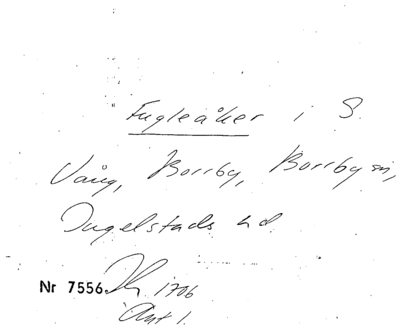 Fugleåker i S.
Vång, Borrby, Borrby sn,
Ingelstads hd.
Nr 7556. 1706
Akt 1.